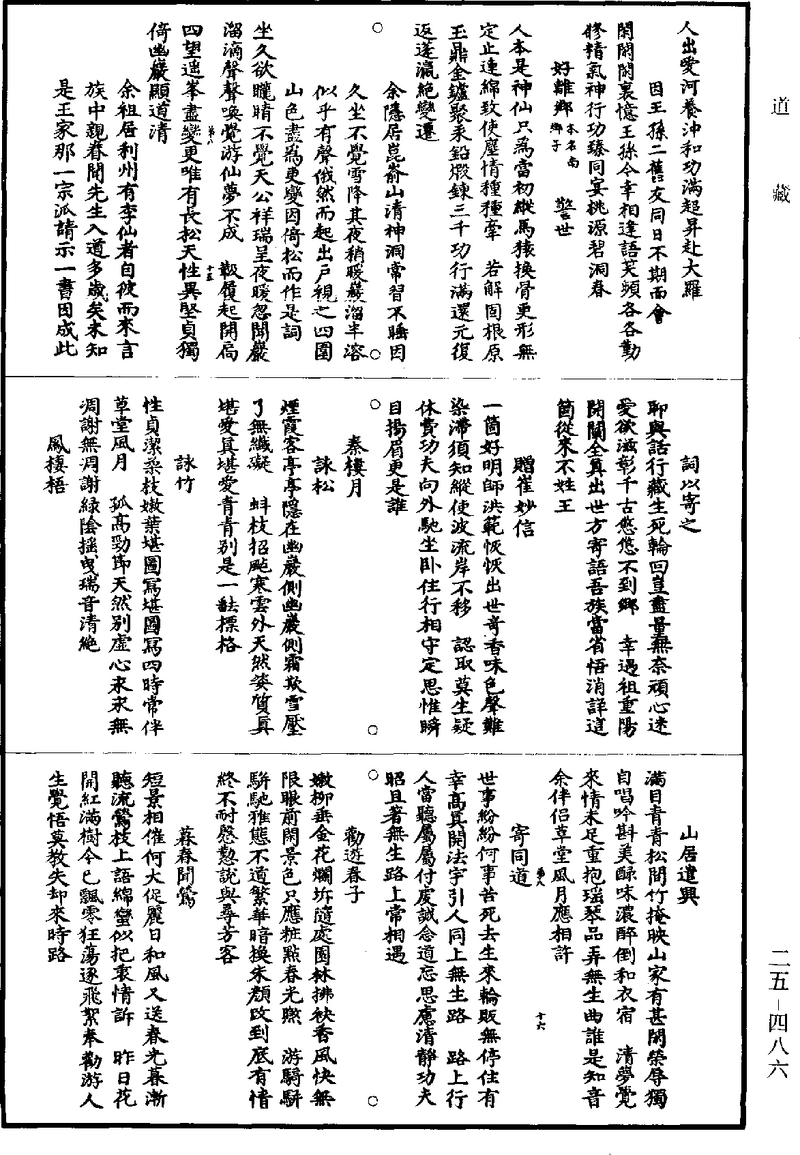 道藏
人出愛河養沖和功滿超昇赴大羅
因王孫二舊友同日不期而會
閑閑閑裏憶王孫今幸相逢語笑頻各各勤
修精氣神行功臻同宴桃源碧洞春
好離鄉 本名南鄉子 警世
人本是神仙只為當初縱馬猿換骨更形無
定止連綿致使塵情種種牽 若解固根原
玉鼎金爐聚汞鉛煅鍊三千功行滿還元復
返蓬瀛絕變遷
余隱居崑崙山清神洞常習不睡因
久坐不覺雪降其夜稍暖巖溜半溶
似乎有聲俄然而起出戶視之四圍
山色盡為更變因倚松而作是詞
坐久欲朧晴不覺天公祥瑞呈夜暖忽聞巖
溜滴聲聲喚覺游仙夢不成 靸履起開扃
四望遥峯盡變更唯有長松天性異堅貞獨
倚幽巖顯道清
余祖居利州有李仙者自彼而來言
族中親眷問先生入道多歲矣未知
是王家那一宗派請示一書因成此
詞以寄之
聊與話行藏生死輪回豈盡量無奈頑心迷
愛欲滋彰千古悠悠不到鄉 幸遇祖重陽
閉關全真出世方寄語吾族當省悟消詳這
箇從來不姓王
贈崔妙信
一箇好明師洪範恢恢出世奇香味色聲難
染滯須知縱使波流岸不移 認取莫生疑
休費功夫向外馳坐卧住行相守定思惟瞬
目揚眉更是誰
秦樓月
詠松
煙霞客亭亭隱在幽巖側幽巖側霜欺雪壓
了無纖礙 蚪枝招颭寒雲外天然姿質真
堪愛真堪愛青青别是一般標格
詠竹
性貞潔柔枝嫩葉堪圖寫堪圖寫四時常伴
草堂風月 孤高勁節天然别虛心永永無
凋謝無凋謝綠陰摇曳瑞音清絶
鳳棲梧
山居遣興
滿目青青松間竹掩映山家有甚閑榮辱獨
自唱吟斟美醁味濃醉倒和衣宿 清夢覺
來情未足重抱瑶琴品弄無生曲誰是知音
余伴侣草堂風月應相許
寄同道
世事紛紛何事苦死去生來輪販無停住有
幸高真開法宇引人同上無生路 路上行
人當聽屬屬付虔誠念道忘思慮清静功夫
昭且著無生路上常相遇
勸遊春子
嫩柳垂金花爛坼隨處園林拂袂香風快無
限眼前閑景色只應粧點春光煦 游騎駢
駢馳雅態不道繁華暗換朱顔改到底有情
終不耐慇懃說與尋芳客
暮春聞鶯
短景相催何大促麗日和風又送春光暮漸
聽流鶯枝上語綿蠻似把衷情訴 昨日花
開紅滿樹今已飄零狂蕩逐飛絮奉勸游人
生覺悟莫教失却來時路
二五-四八六